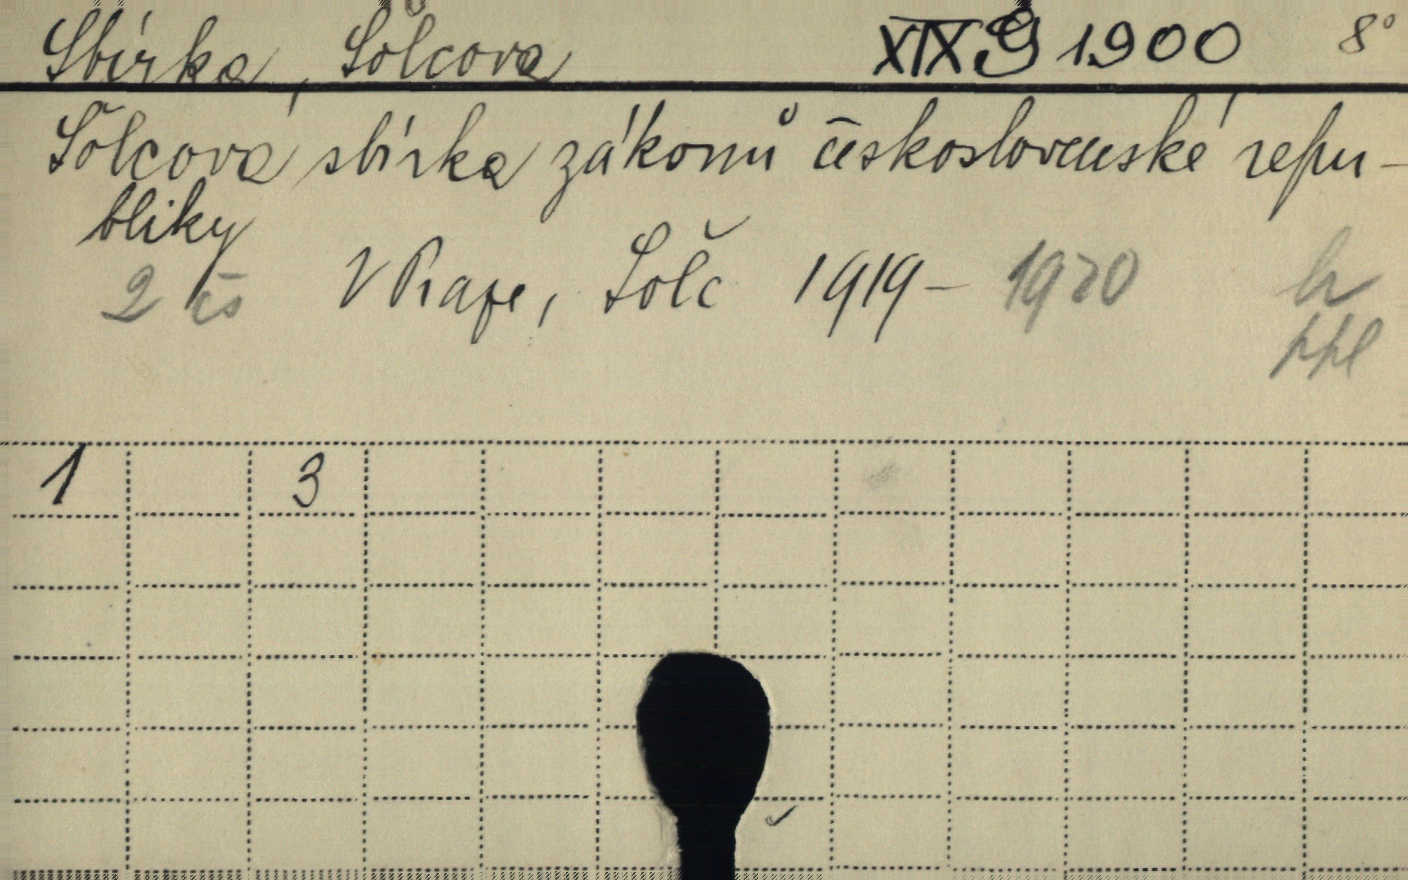 Sbírka, Šolcova XIX G 1900 8°
Šolcova sbírka zákonů československé repu-
bliky
2 čs V Praze, Šolc 1919-1920 h
ppl
1 3